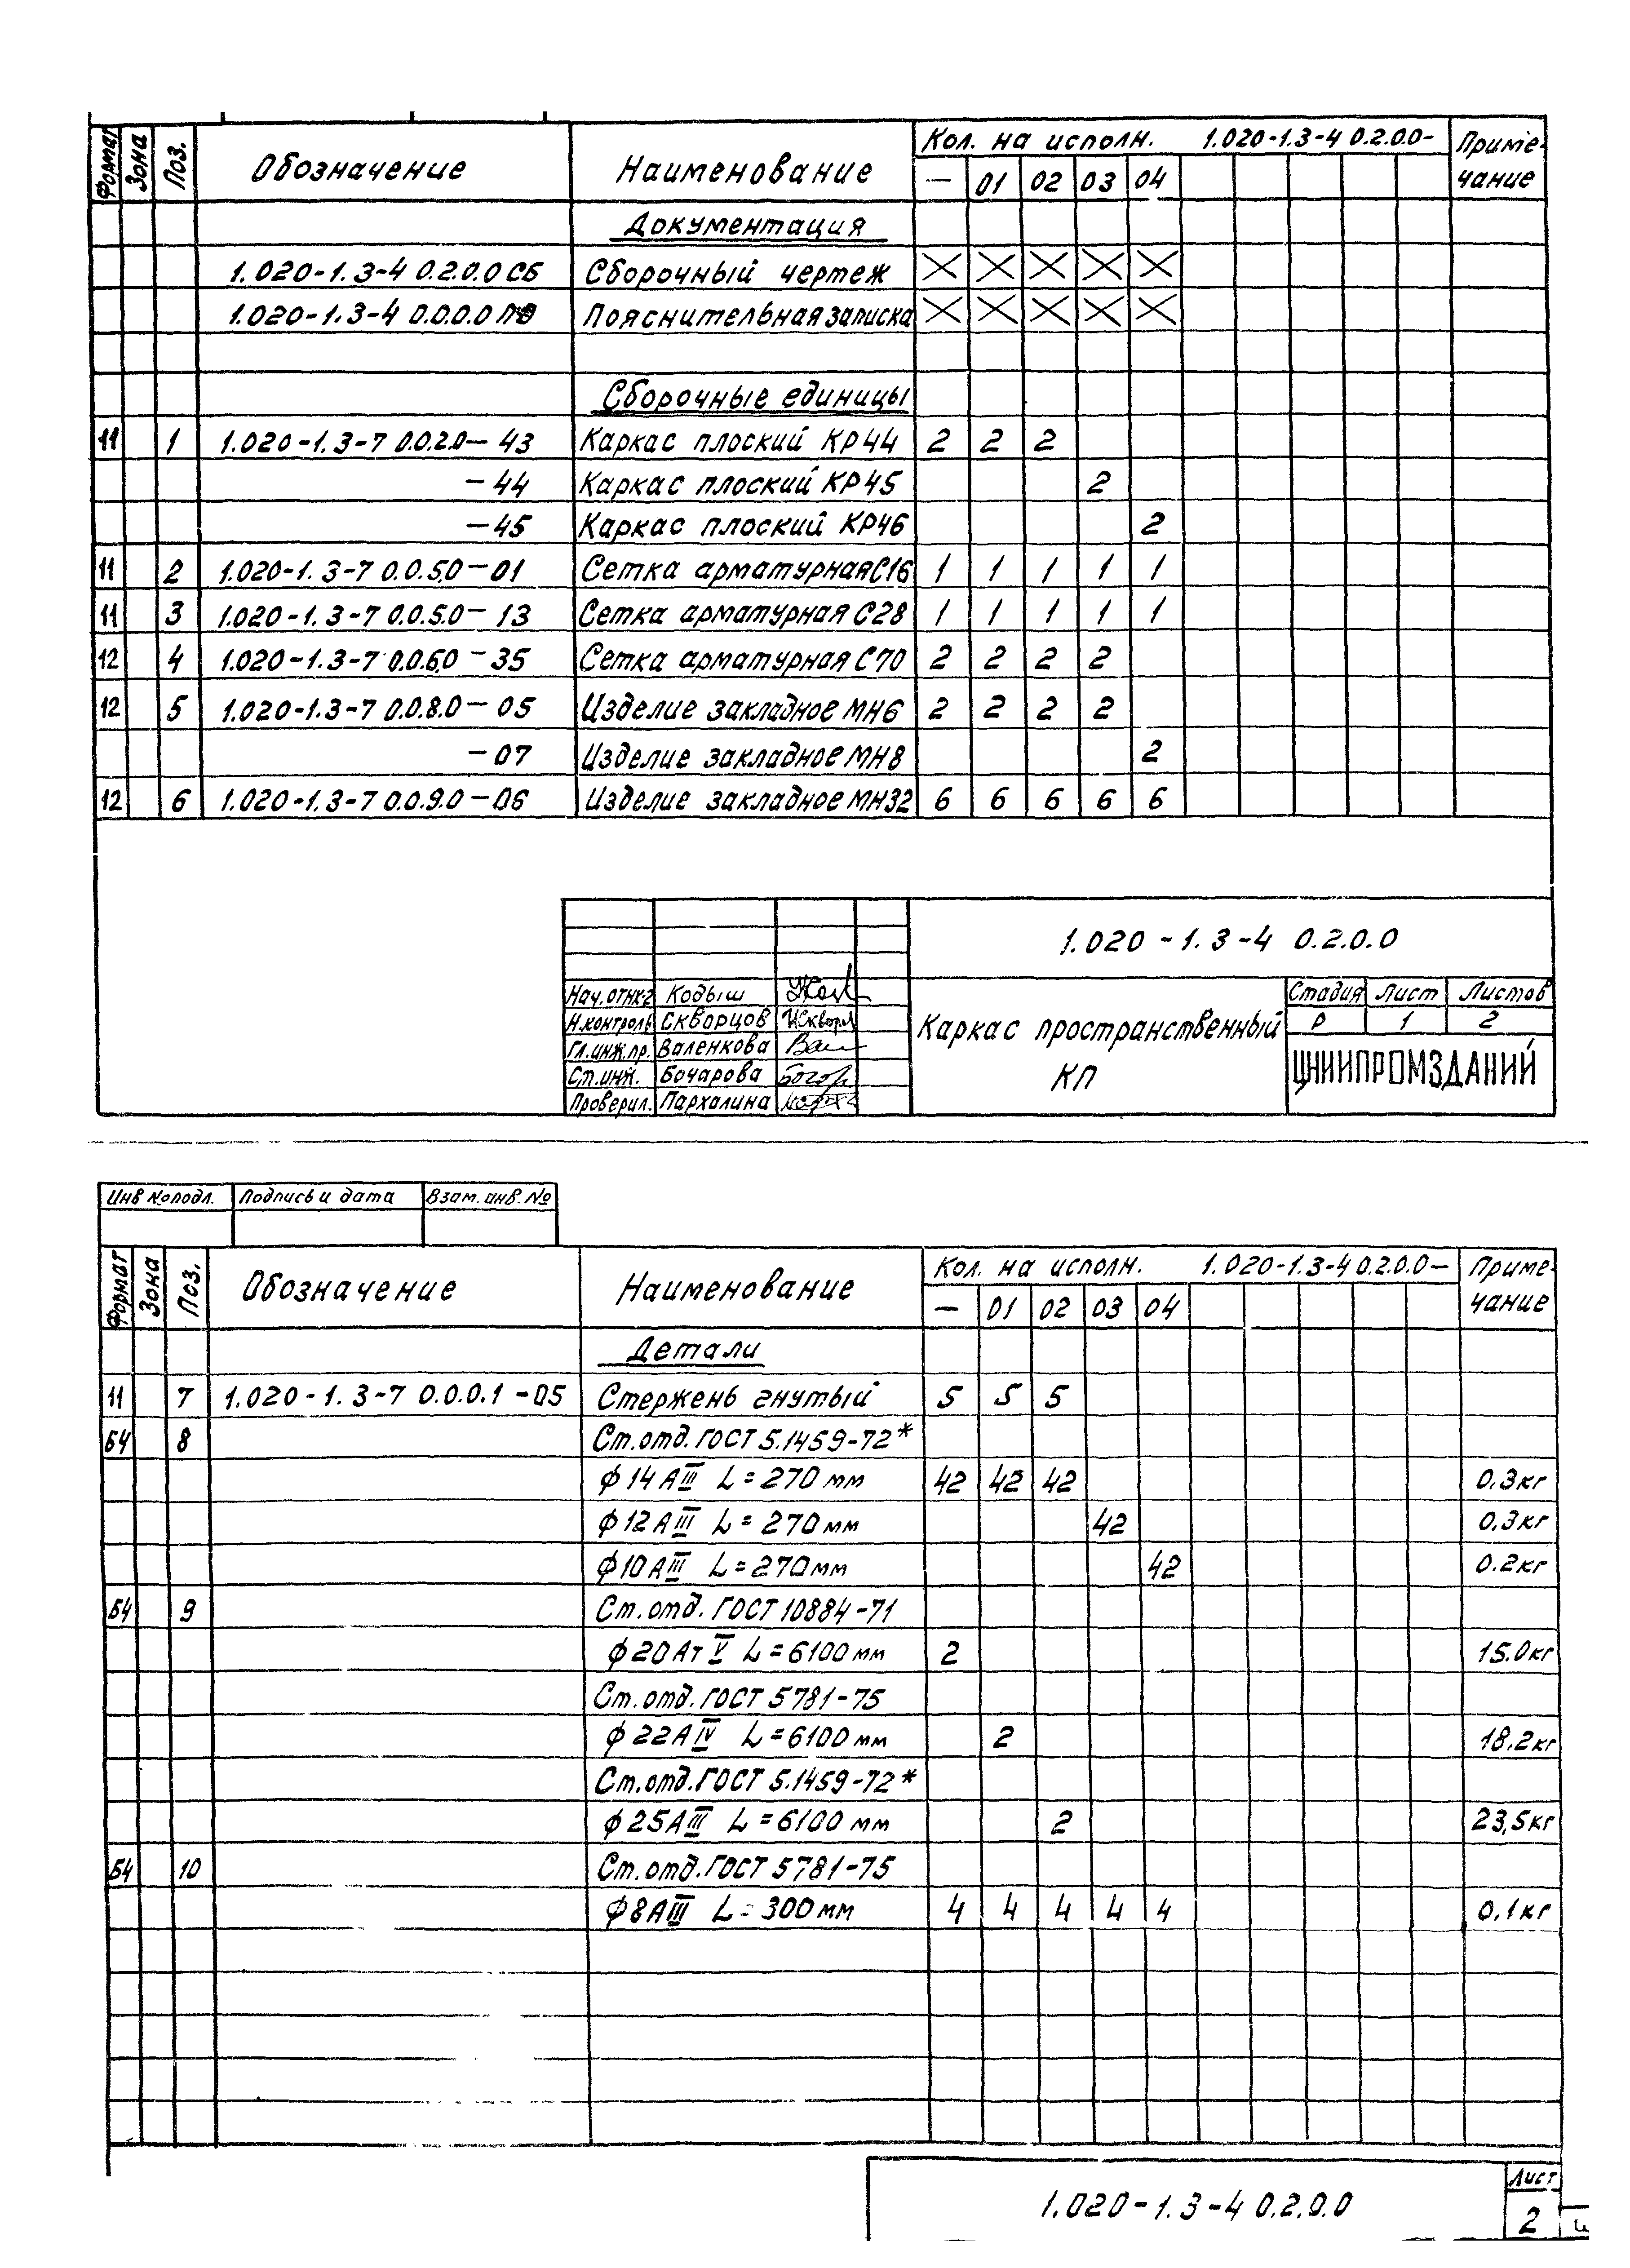 Формат Зона Поз. Обозначение Наименование Кол. на исполн. 1.020-1.3-4 0.2.0.0- Приме-
— 01 02 03 04 чание
Документация
1.020-1.3-4 0.2.0.0 СБ Сборочный чертеж
1.020-1.3-4 0.0.0.0 Пояснительная записка
Сборочные единицы
11 1 1.020-1.3-7 0.0.2.0—43 Каркас плоский КР44 2 2 2
—44 Каркас плоский КР45 2
—45 Каркас плоский КР46 2
11 2 1.020-1.3-7 0.0.5.0—01 Сетка арматурная С16 1 1 1 1 1
11 3 1.020-1.3-7 0.0.5.0—13 Сетка арматурная С28 1 1 1 1 1
12 4 1.020-1.3-7 0.0.6.0—35 Сетка арматурная С70 2 2 2 2
12 5 1.020-1.3-7 0.0.8.0—05 Изделие закладное МН6 2 2 2 2
—07 Изделие закладное МН8 2
12 6 1.020-1.3-7 0.0.9.0—06 Изделие закладное МН32 6 6 6 6 6
1.020-1.3-4 0.2.0.0
Нач.отнк-2 Кодыш
Н.контроль Скворцов
Гл.инж.пр. Валенкова
Ст.инж. Бочарова
Проверил. Пархалина
Каркас пространственный
КП
Стадия Лист Листов
Р 1 2
ЦНИИПРОМЗДАНИЙ
Инв №подл. Подпись и дата Взам. инв. №
Формат Зона Поз. Обозначение Наименование Кол. на исполн. 1.020-1.3-4 0.2.0.0— Приме-
— 01 02 03 04 чание
Детали
11 7 1.020-1.3-7 0.0.0.1-05 Стержень гнутый 5 5 5
Б4 8 Ст.отд. ГОСТ 5.1459-72*
ф14АIII L=270 мм 42 42 42 0.3кг
ф12АIII L=270 мм 42 0.3кг
ф10АIII L=270мм 42 0.2кг
Б4 9 Ст.отд. ГОСТ 10884-71
ф20АтV L=6100 мм 2 15.0кг
Ст.отд. ГОСТ 5781-75
ф22АIV L=6100 мм 2 18.2кг
Ст.отд. ГОСТ 5.1459-72*
ф25АIII L=6100 мм 2 23,5кг
Б4 10 Ст.отд. ГОСТ 5781-75
ф8АIII L=300 мм 4 4 4 4 4 0,1кг
1.020-1.3-4 0.2.0.0
Лист
2